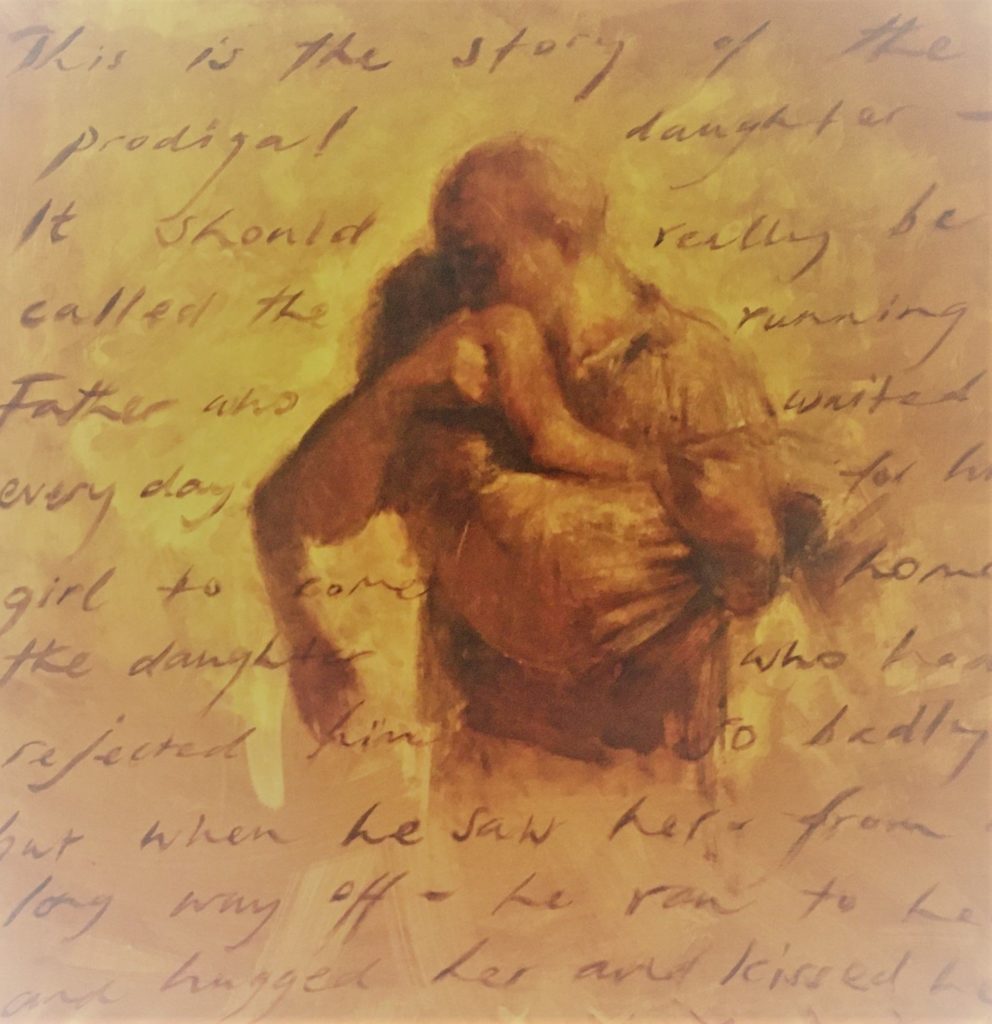 This is the story of the
prodigal daughter –
It should really be
called the running
Father who waited
every day for h
girl to come home
the daughter who had
rejected him so badly
but when he saw her - from
long way off - he ran to he
and hugged her and kissed he